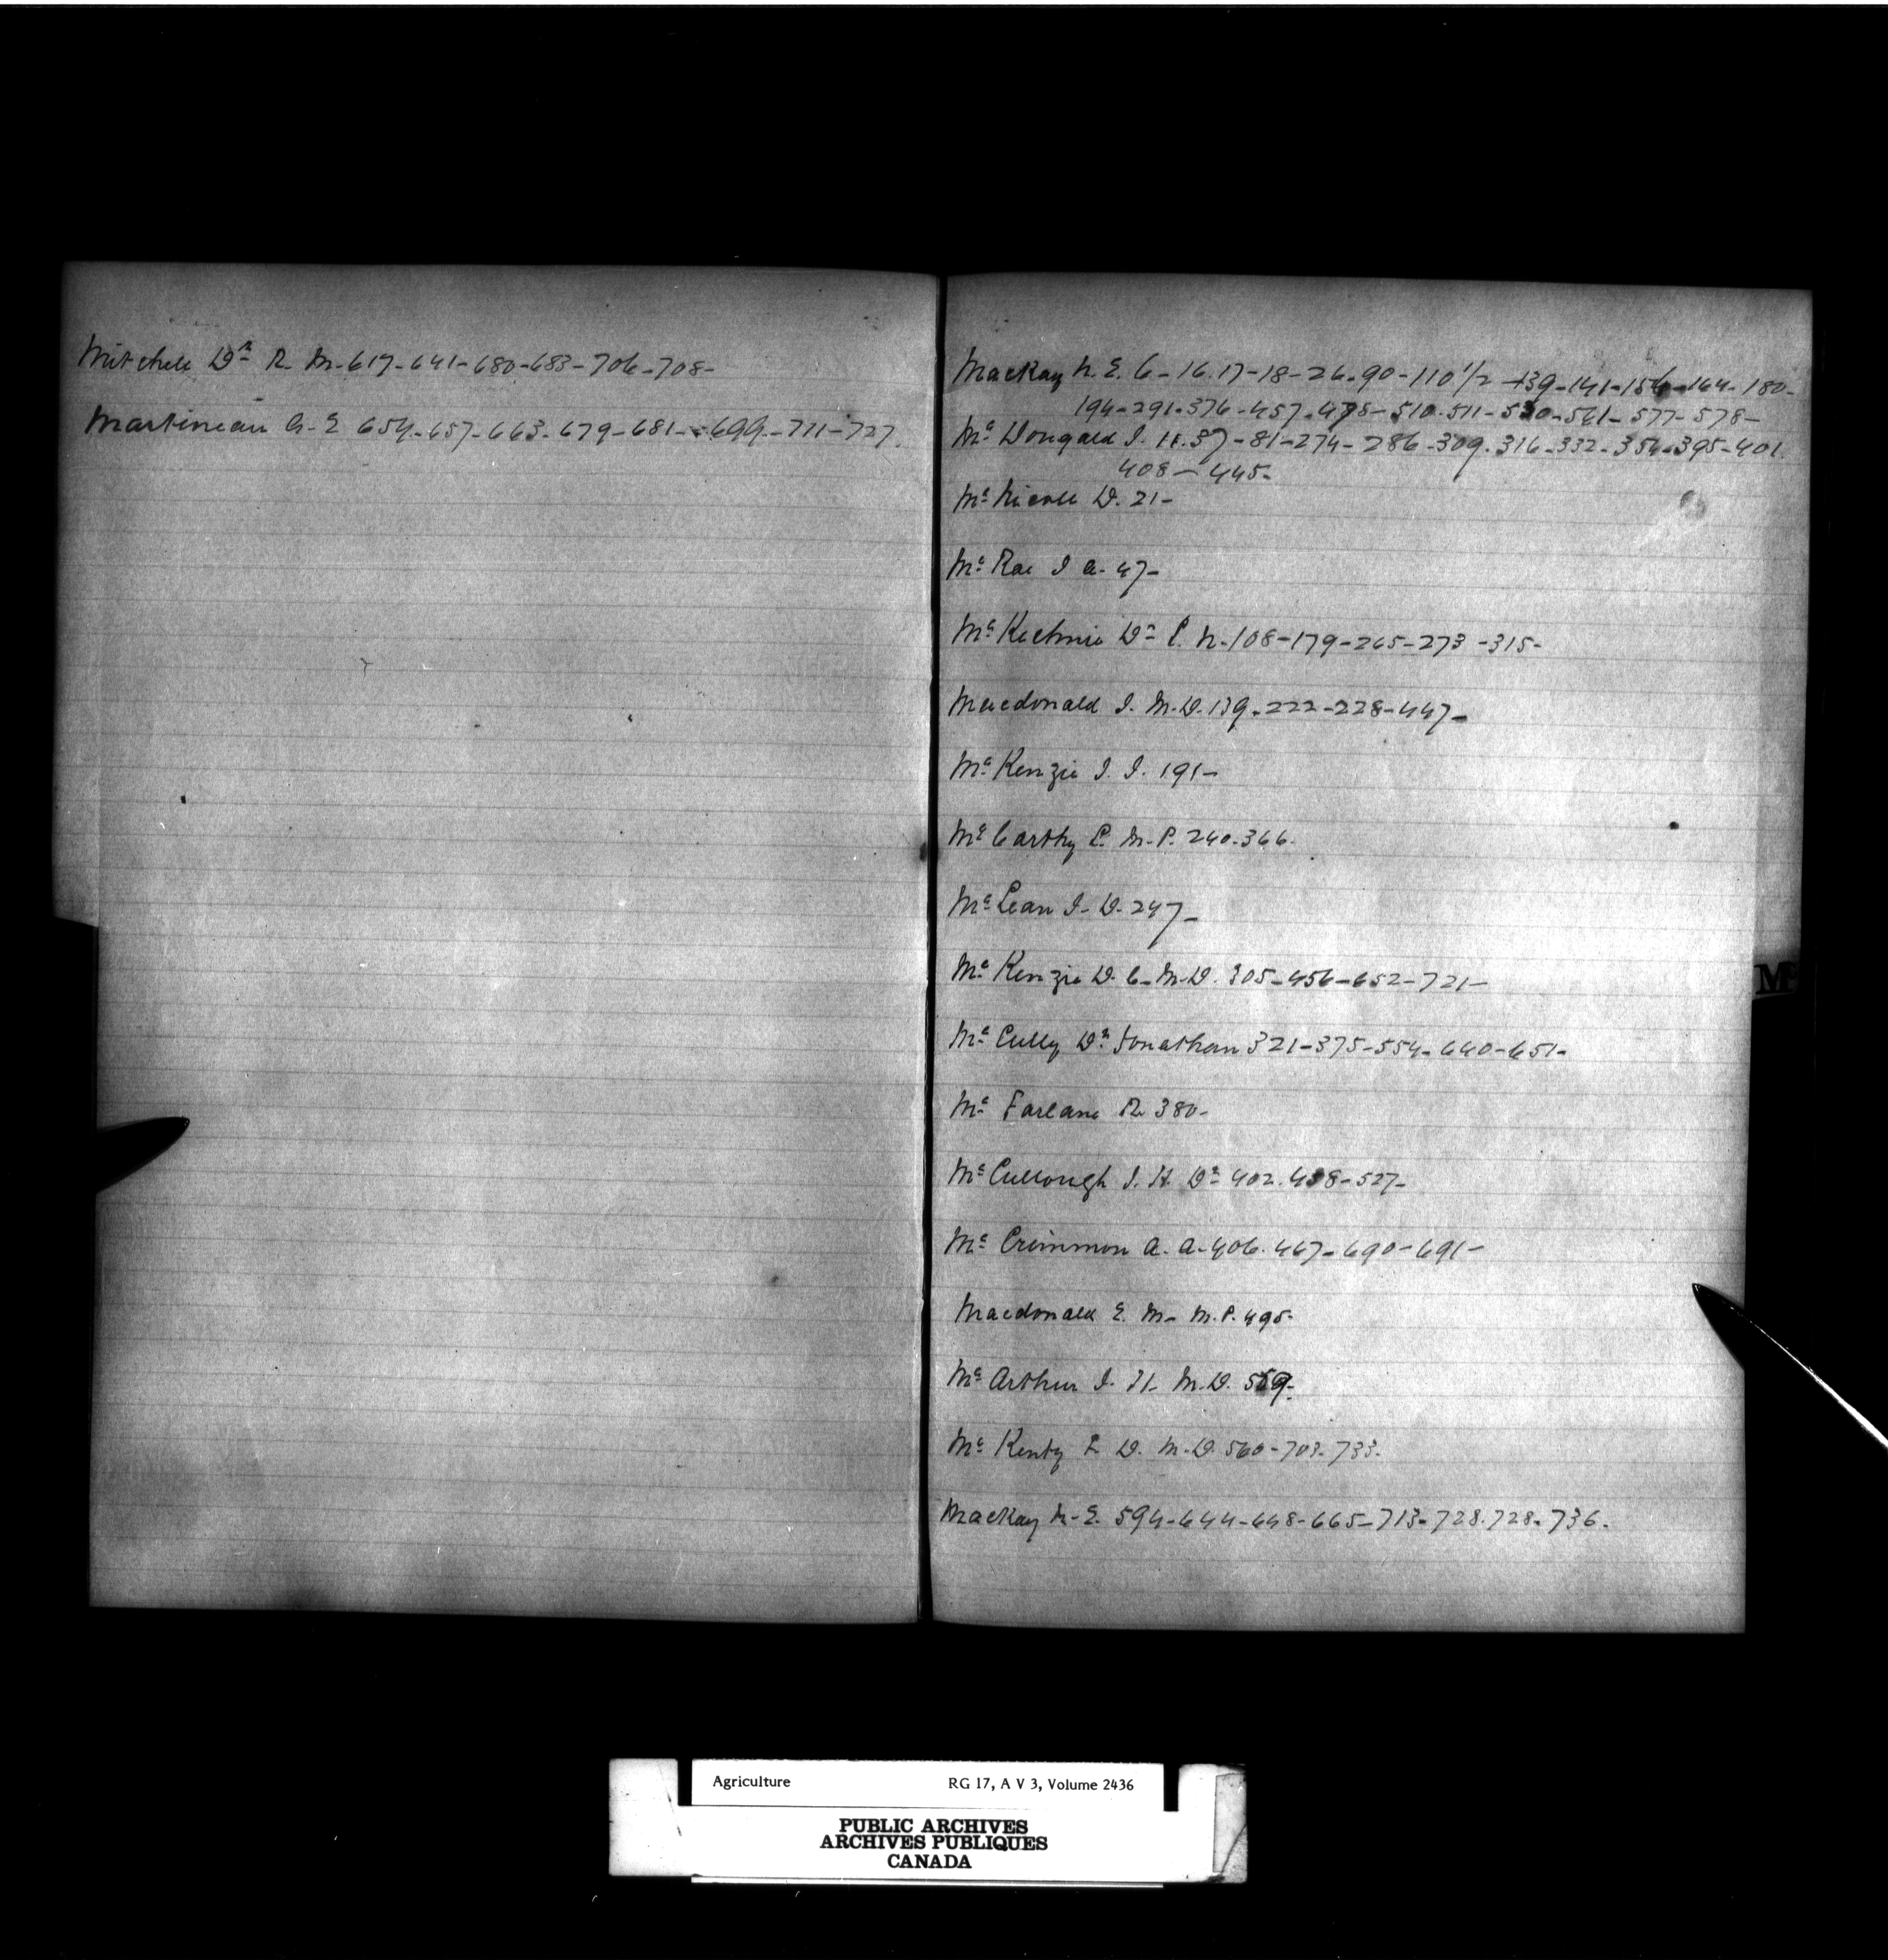 Mitchell Dr R. M-617-641-680-683-706-708-
Martineau G. E 654-657-663-679-681-699-711-727.
MacKay N. E. 6-16.17-18-26-90-110 1/2-139-141-156-164-180-
194-291-376-457-478-510-511-530-561-577-578-
Mc Dougald J. H. 37-81-274-286-309-316-332-354-395-401.
408-445-
Mc Nicoll D. 21-
Mc Rae J A. 47-
Mc Kechnie Dr P. N.-108-179-265-273-315-
Macdonald J. M.D. 139-222-228-447-
Mc Kenzie J. J. 191-
Mc Carthy L. M.P. 240-366.
Mc Lean J. D. 247-
Mc Kenzie D. C. M.D. 305-456-652-721-
Mc Cully Dr Jonathan 321-375-554-640-651-
Mc Farlane R 380-
Mc Cullough J. H. Dr 402-438-527-
Mc Crimmon A. A-406-467-690-691-
Macdonald E. M- M.P. 495-
Mc Arthur J. H- M.D. 559-
Mc Kenty F. D. M.D. 560-703-733.
MacKay N.E. 594-644-648-665-713-728.728-736.
Mc
Agriculture RG 17, A V 3, Volume 2436
PUBLIC ARCHIVES
ARCHIVES PUBLIQUES
CANADA